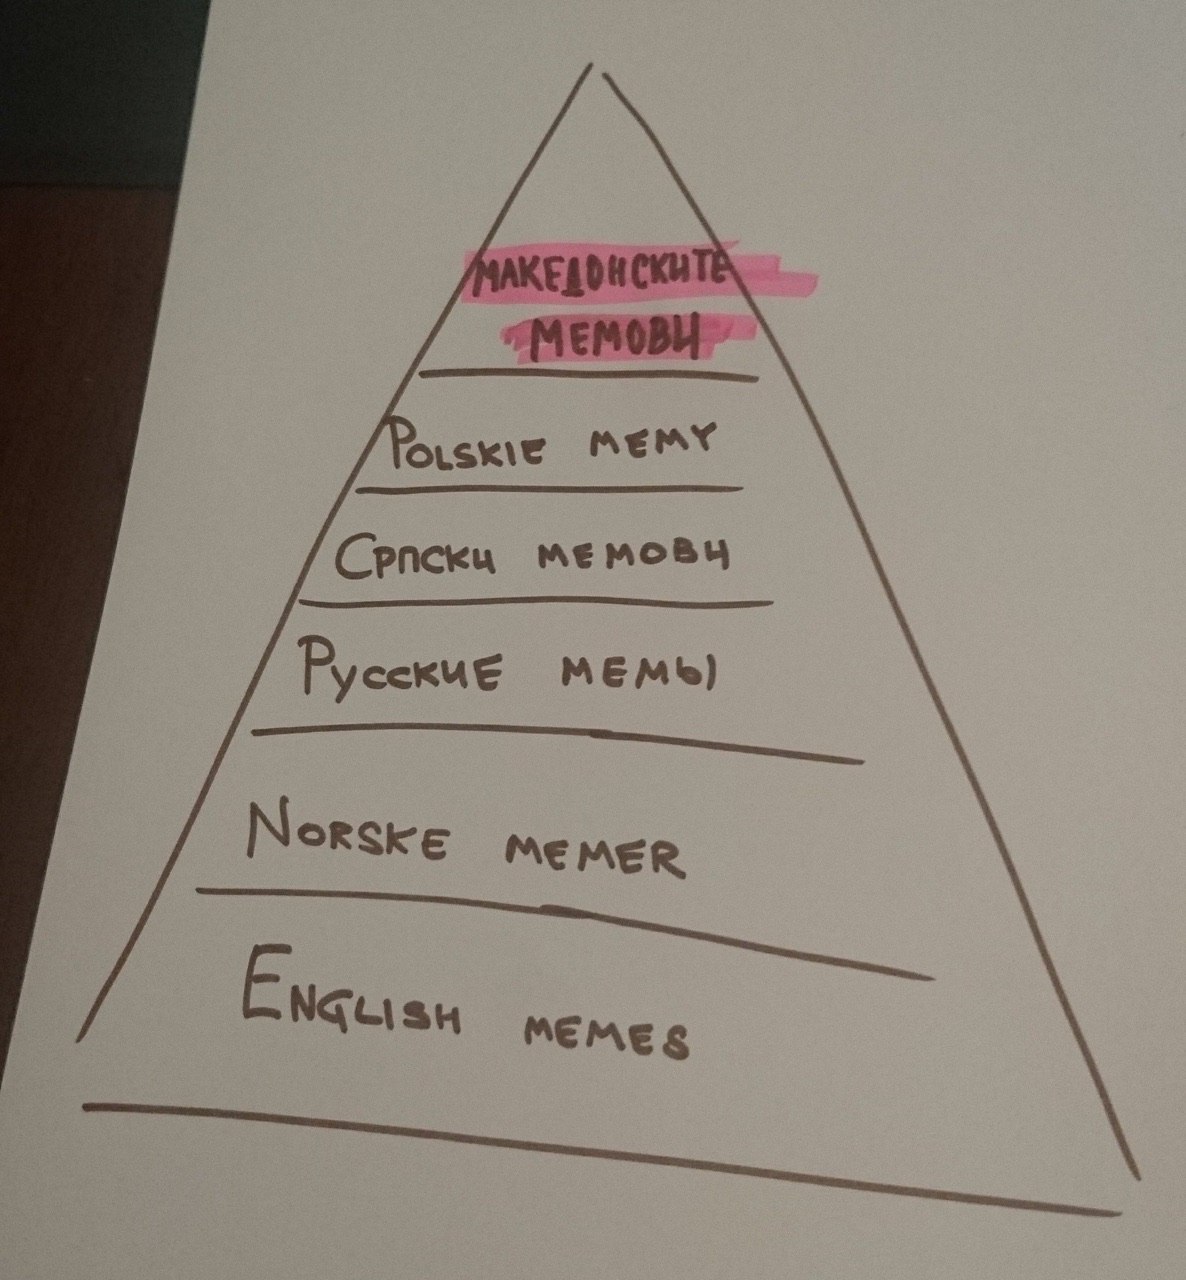 МАКЕДОНСКИТЕ
МЕМОВИ
POLSKIE MEMY
Српски мемови
Русские мемы
NORSKE MEMER
ENGLISH MEMES